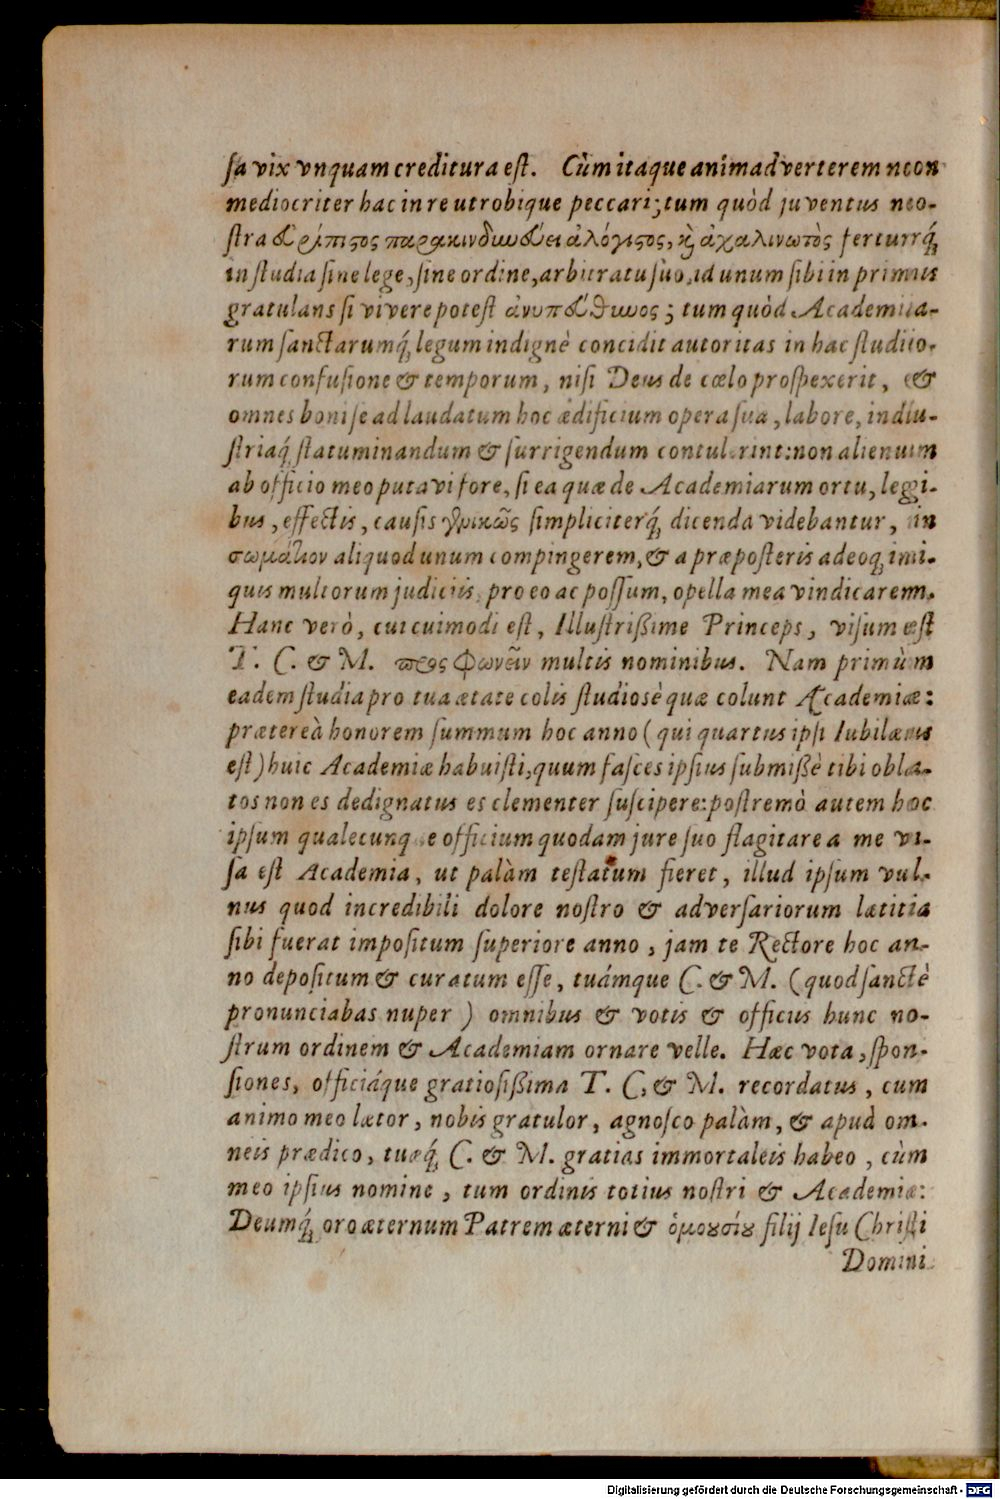 sa vix vnquam creditura est. Cùm itaque animadverterem non
mediocriter hac in re utrobique peccari; tum quòd juventus no-
stra ἀλόγιστος, καὶ ἀχαλινωτὸς ferturq́
in studia sine lege, sine ordine, arbitratu suo, id unum sibi in primis
gratulans si vivere potest ἀνυπευθύνως; tum quòd Academia-
rum sanctarumq́ legum indignè concidit autoritas in hac studio-
rum confusione & temporum, nisi Deus de cœlo prospexerit, &
omnes boni se ad laudatum hoc ædificium opera sua, labore, indu-
striaq́ statuminandum & surrigendum contulerint: non alienum
ab officio meo putavi fore, si ea quæ de Academiarum ortu, legi-
bus, effectis, causis simpliciterq́ dicenda videbantur, in
σωμάτιον aliquod unum compingerem, & a præposteris adeoq́ imi-
quis multorum judiciis, pro eo ac possum, opella mea vindicarem.
Hanc verò, cuicuimodi est, Illustrißime Princeps, visum est
T. C. & M. προςφωνεῖν multis nominibus. Nam primùm
eadem studia pro tua ætate colis studiosè quæ colunt Academiæ:
prætereà honorem summum hoc anno (qui quartus ipsi Iubilæus
est) huic Academiæ habuisti, quum fasces ipsius submißè tibi obla-
tos non es dedignatus es clementer suscipere: postremò autem hoc
ipsum qualecunque officium quodam jure suo flagitare a me vi-
sa est Academia, ut palàm testatum fieret, illud ipsum vul-
nus quod incredibili dolore nostro & adversariorum lætitia
sibi fuerat impositum superiore anno, jam te Rectore hoc an-
no depositum & curatum esse, tuámque C. & M. (quod sanctè
pronunciabas nuper) omnibus & votis & officiis hunc no-
strum ordinem & Academiam ornare velle. Hæc vota, spon-
siones, officiáque gratiosißima T. C. & M. recordatus, cum
animo meo lætor, nobis gratulor, agnosco palàm, & apud om-
neis prædico, tuæq́ C. & M. gratias immortaleis habeo, cùm
meo ipsius nomine, tum ordinis totius nostri & Academiæ:
Deumq́ oro æternum Patrem æterni & ὁμουσίου filij Iesu Christi
Domini
Digitalisierung gefördert durch die Deutsche Forschungsgemeinschaft - DFG